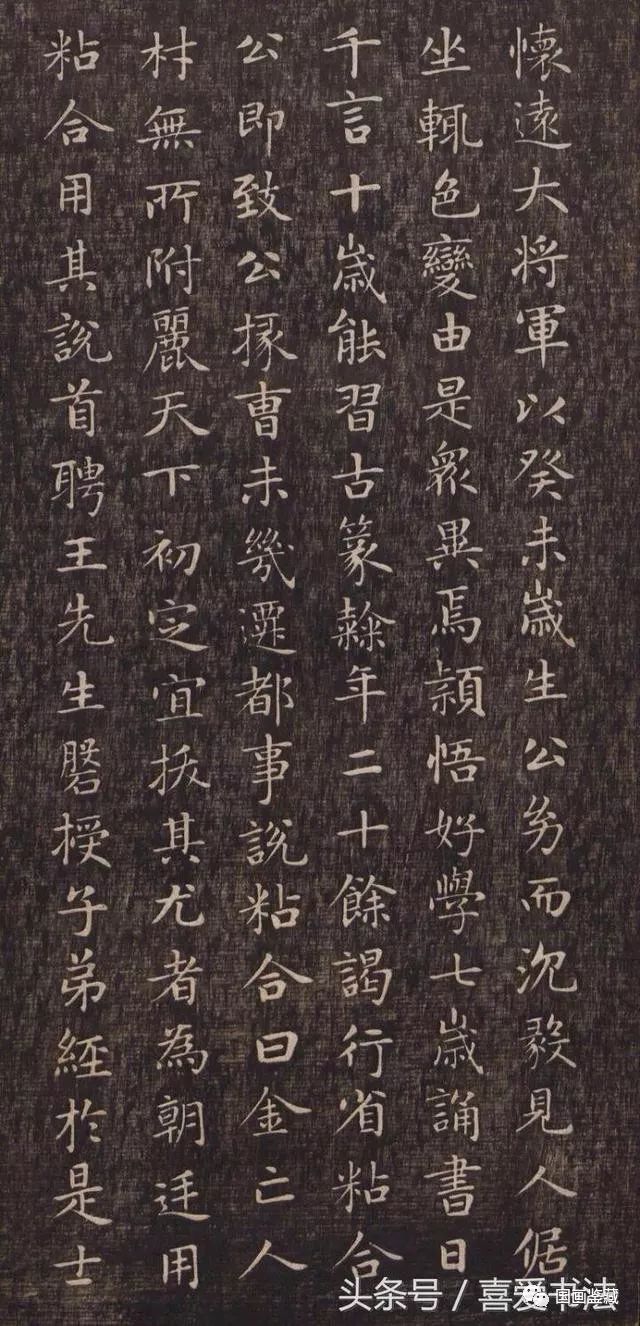 懷遠大将軍以癸未嵗生公㓜而沉毅見人倨
坐輒色變由是衆異焉頴悟好學七嵗誦書日
千言十嵗能習古篆䌓年二十餘謁行省粘合
公即致公掾曹未幾遷都事說粘合曰金亡人
材無所附麗天下初定宜拔其尤者為朝廷用
粘合用其說首聘王先生磐授子弟經於是士
头条号 / 喜爱书法
国画鉴藏